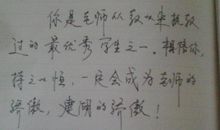 你是老师从教以来教
过的最优秀学生之一。相信你,
持之以恒,一定会成为老师的
骄傲,建明的骄傲!